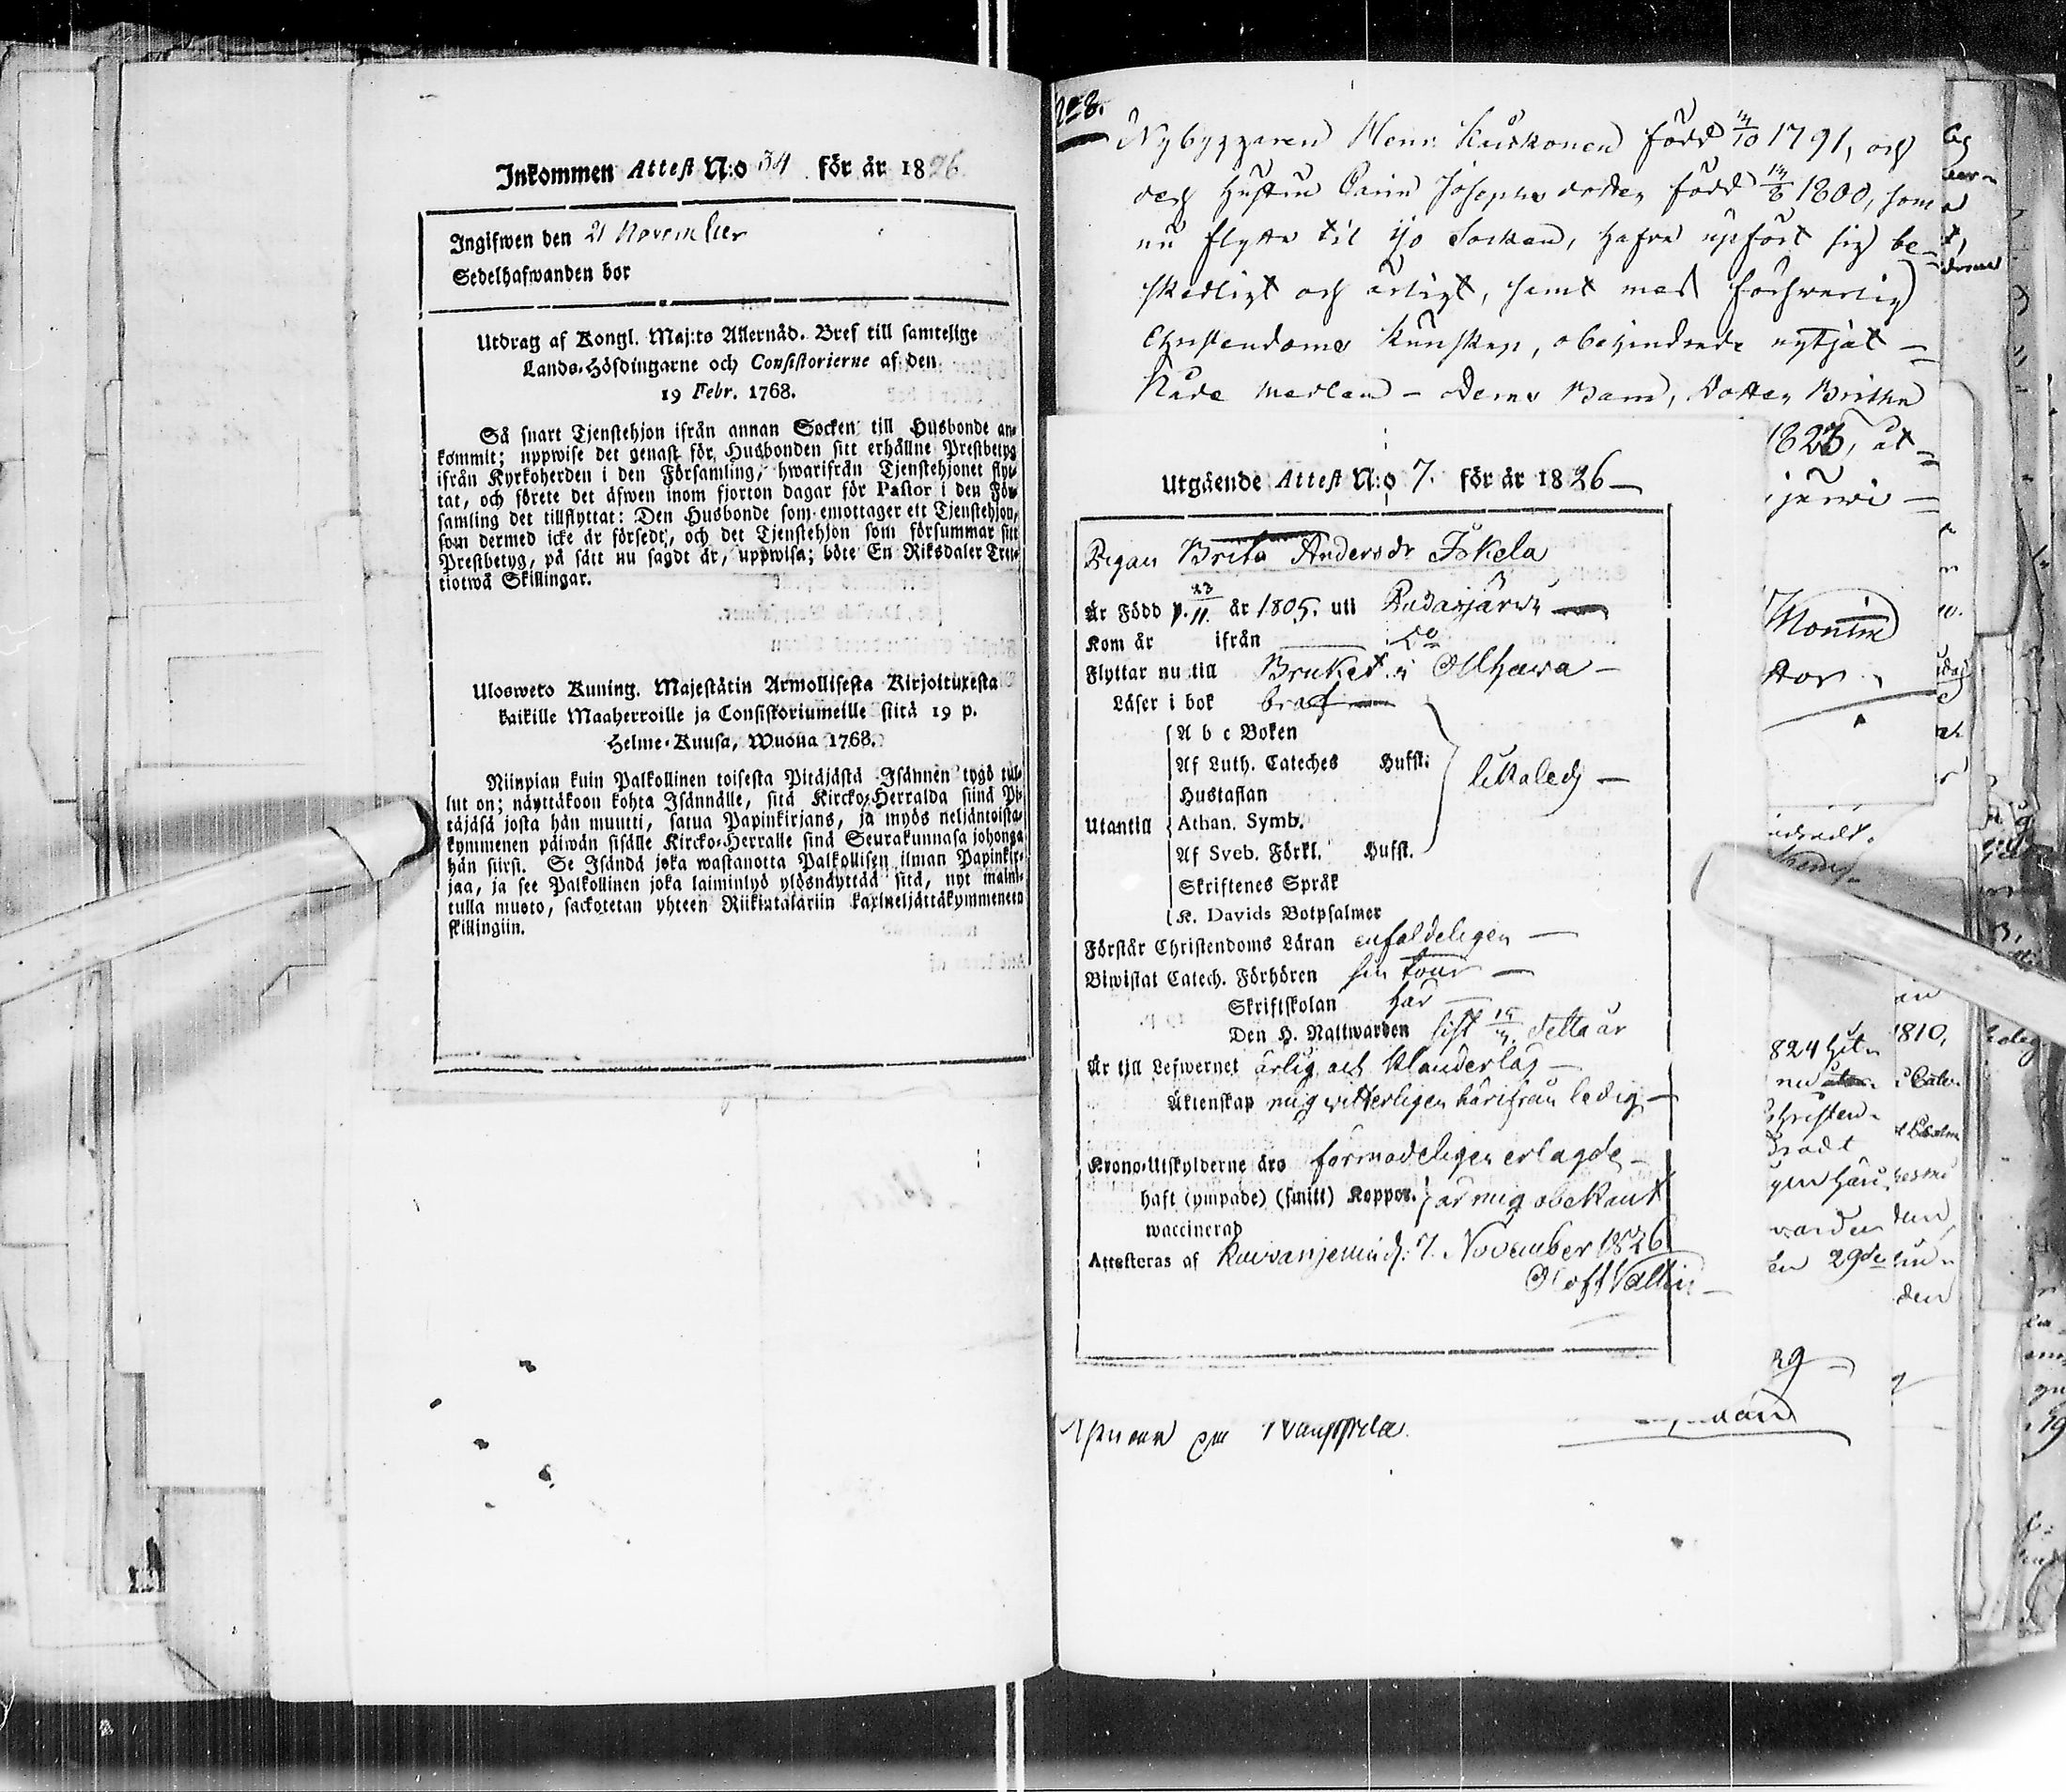 Inkommen Attest N:o 34 för år 1826
Ingifwen den 21 November
Sedelhafwanden bor
Utdrag af Kongl. Maj:ts Allernåd. Bref till samtelige
Lands-Höfdingarne och Consistorierne af den
19 Febr. 1768.
Så snart Tjenstehjon ifrån annan Socken till Husbonde an-
kommit; uppwise det genast för Husbonden sitt erhållne Prestbetyg
ifrån Kyrkoherden i den Församling, hwarifrån Tjenstehjonet flyt-
tat, och förete det äfwen inom fjorton dagar för Pastor i den För-
samling det tillflyttat: Den Husbonde som emottager ett Tjenstehjon,
som dermed icke är försedt, och det Tjenstehjon som försummar sitt
Prestbetyg, på sätt nu sagdt är, uppwisa; böte En Riksdaler Tret-
tiotwå Skillingar.
Ulosweto Kuning. Majestätin Armollisesta Kirjoituxesta
kaikille Maaherroille ja Consistoriumeille siitä 19 p.
Helme-Kuusa, Wuonna 1768.
Niinpian kuin Palkollinen toisesta Pitäjästä Isännen tygö tul-
lut on; näyttäköön kohta Isännälle, sitä Kircko-Herralda siinä Pi-
täjäsä josta hän muutti, saatua Papinkirjans, ja myös neljäntoista-
kymmenen päiwän sisälle Kircko-Herralle sinä Seurakunnasa johonga
hän siirsi. Se Isändä joka wastanotta Palkollisen ilman Papinkir-
jaa, ja see Palkollinen joka laiminlyö ylösnäyttää sitä, nyt maini-
tulla muoto, sackotetan yhteen Riikintalariin kaxineljättäkymmeneen
skillingiin.
No 8.
Nybyggaren Henr. Kuiskonen född 14/10 1791, och
dess Hustru Carin Josephsdotter född 14/8 1800, som
nu flytta til Ijo Socken, hafva upfört sig be-
skedligt och ärligt, samt med försvarlig
Christendoms Kunskap, obehindrade nytjat
Nådemedlen - Deras Barn, Dotter Britha
1823, at
Utgående Attest N:o 7. för år 1826
Pigan Brita Andersdr Iskela
Är Född p. 23/11 år 1805. uti Pudasjärvi
Kom år ifrån do
Flyttar nu till Bruket i Olhava
Läser i bok braf
Utantill
A b c Boken
Af Luth. Cateches Husfl.
Hustaflan
Athan. Symb.
Af Sveb. Förkl. Husfl.
Skriftenes Språk
K. Davids Botpsalmer
likaledes
Förstår Christendoms Läran enfaldeligen
Biwistat Catech. Förhören sin tour
Skriftskolan här
Den H. Nattwarden sist detta år
Är till Lefwernet ärlig och klanderlös
Äktenskap mig vitterligen härifrån ledig
Krono-Utskylderne äro förmodeligen erlagde
haft (ympade) (smitt) Koppor. är mig obekant
waccinerad
Attesteras af 7. November 1826
Olof Vallin
824 hit
1810,
Christen-
varden
en 29de
den